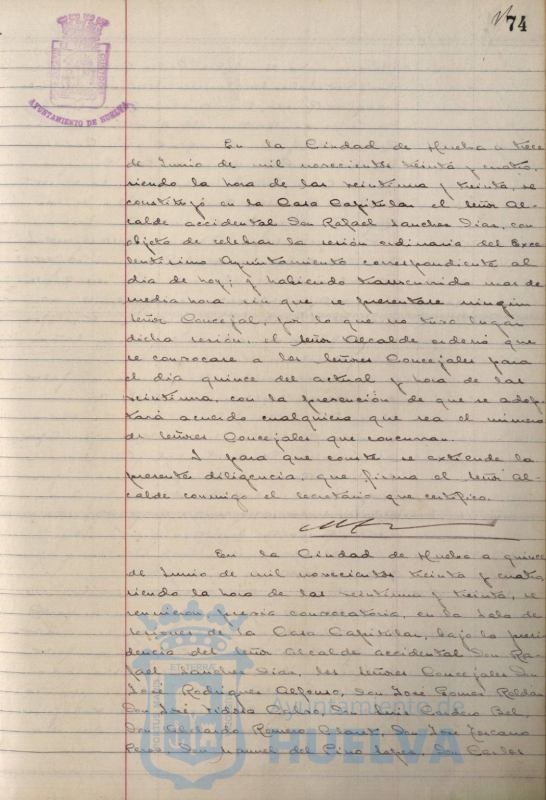 74
AYUNTAMIENTO DE HUELVA
En la Ciudad de Huelva a trece
de Junio de mil novecientos treinta y cuatro,
siendo la hora de las veintiuna y treinta, se
constituyó en la Casa Capitular el Señor Al-
calde accidental Don Rafael Sanchez Diaz, con
objeto de celebrar la sesión ordinaria del Exce-
lentísimo Ayuntamiento correspondiente al
dia de hoy; y habiendo transcurrido mas de
media hora sin que se presentase ningún
Señor Concejal, por lo que no tuvo lugar
dicha sesión, el Señor Alcalde ordenó que
se convocase a los Señores Concejales para
el día quince del actual y hora de las
veintiuna, con la prevención de que se adop-
tará acuerdo cualquiera que sea el número
de Señores Concejales que concurran.
Y para que conste se extiende la
presente diligencia, que firma el Señor Al-
calde conmigo el Secretario que certifico.
En la Ciudad de Huelva a quince
de Junio de mil novecientos treinta y cuatro
siendo la hora de las veintiuna y treinta, se
reunieron previa convocatoria, en la Sala de
sesiones de la Casa Capitular, bajo la presi-
dencia del Señor Alcalde accidental Don Ra-
fael Sanchez Diaz, los Señores Concejales Don
José Rodriguez Alfonso, Don José Gomez Roldan
Don José Don Luis Cordero Bel,
Don Abelardo Romero Don José
Perez, Don Manuel del Pino Lopez, Don Carlos
ET TERRAE
Ayuntamiento de
HUELVA